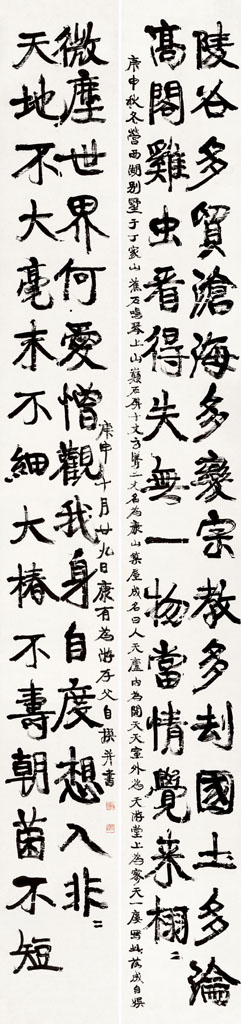 陵谷多貿滄海多變宗教多刦國土多淪
高閣雞虫看得失無一物當情覺來栩〻
庚申秋冬營西湖別墅于丁家山蕉石鳴琴上山巔石屏十丈方二丈名為康山築屋成名曰人天廬內為開天天室外為天游堂上為寥天一廬寫此落成自娛
天地不大毫末不細大椿不壽朝菌不短
微塵世界何愛憎觀我身自度想入非〻
庚申十月廿九日康有為游存父自撰并書